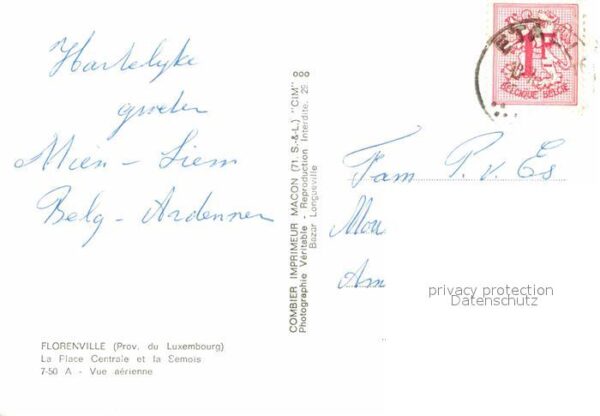 Hartelyke
groeten
Mien - Siem
Belg - Ardennen
FLORENVILLE (Prov. du Luxembourg)
La Place Centrale et la Semois
7-50 A - Vue aérienne
COMBIER IMPRIMEUR MACON (71. S.-&-L.) "CIM"
Photographie Véritable - Reproduction Interdite. 29
Bazar Longueville
1F
BELGIQUE-BELGIË
Fam P. v. Es
Mou
Am
privacy protection
Datenschutz